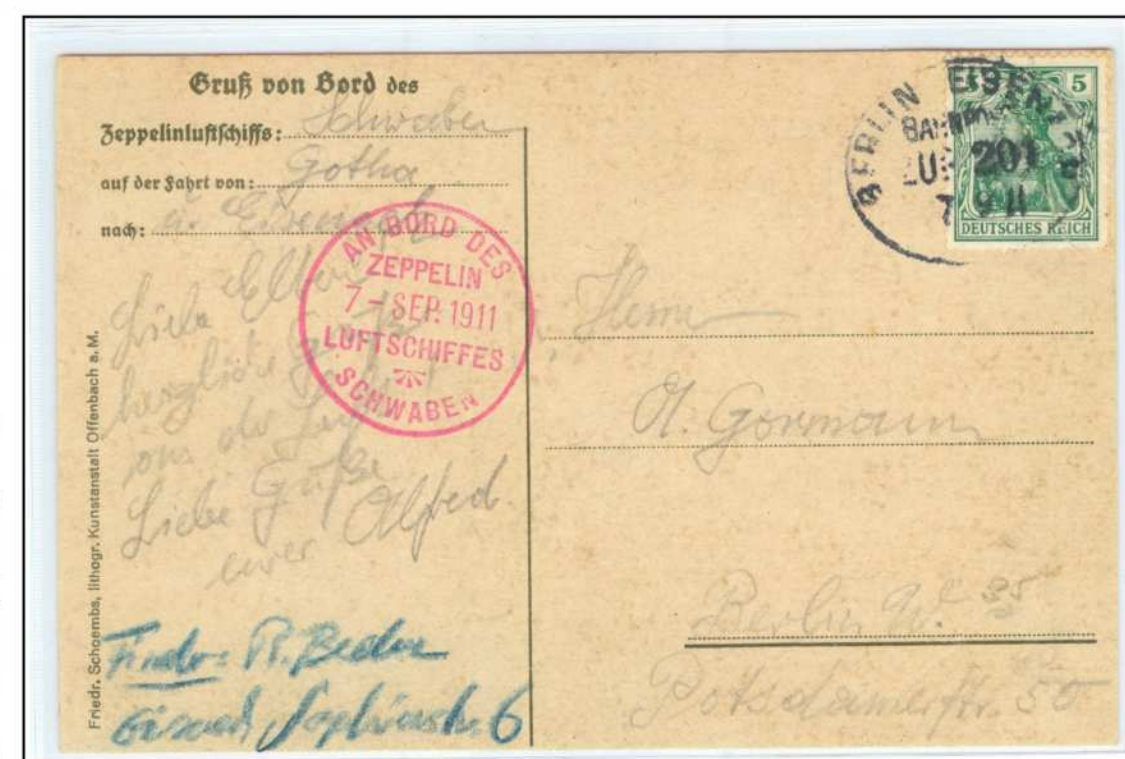 Gruß von Bord des
Zeppelinluftschiffs: Schwaben
auf der Fahrt von: Gotha
nach:
AN BORD DES
ZEPPELIN
7 - SEP. 1911
LUFTSCHIFFES
SCHWABEN
Liebe Eltern
herzliche
aus der
Liebe Grüße
euer Alfred.
Finder: R.
6
Friedr. Schoembs, lithogr. Kunstanstalt Offenbach a. M.
BERLIN
BAHNPOST
ZUG 201
7 9 11
5
DEUTSCHES REICH
Herrn
A. Gormann
Berlin W. 35
Potsdamerstr. 55